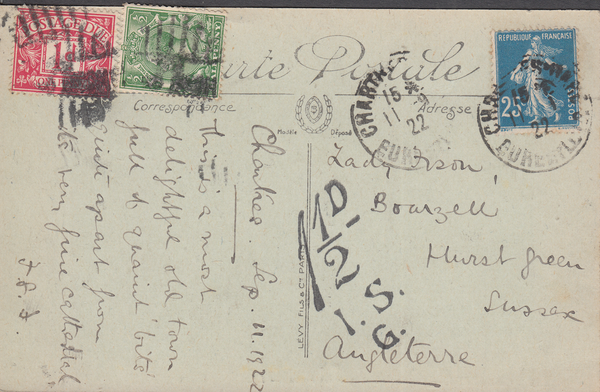 POSTAGE DUE
1D
ONE PENNY
½
½
Carte Postale
Correspondance
Adresse
Modèle Déposé
RÉPUBLIQUE FRANÇAISE
25
POSTES
CHARTRES
15
11 22
EURE
15
11
22
Chartres. Sep. 11. 1922
This is a most
delightful old town
full of quaint 'bits'
quite apart from
its very fine cathedral
Lady Orson,
Boarzell
Hurst Green
Sussex
Angleterre
1½D.
S.G.
LEVY, FILS & Cⁱᵉ PARIS